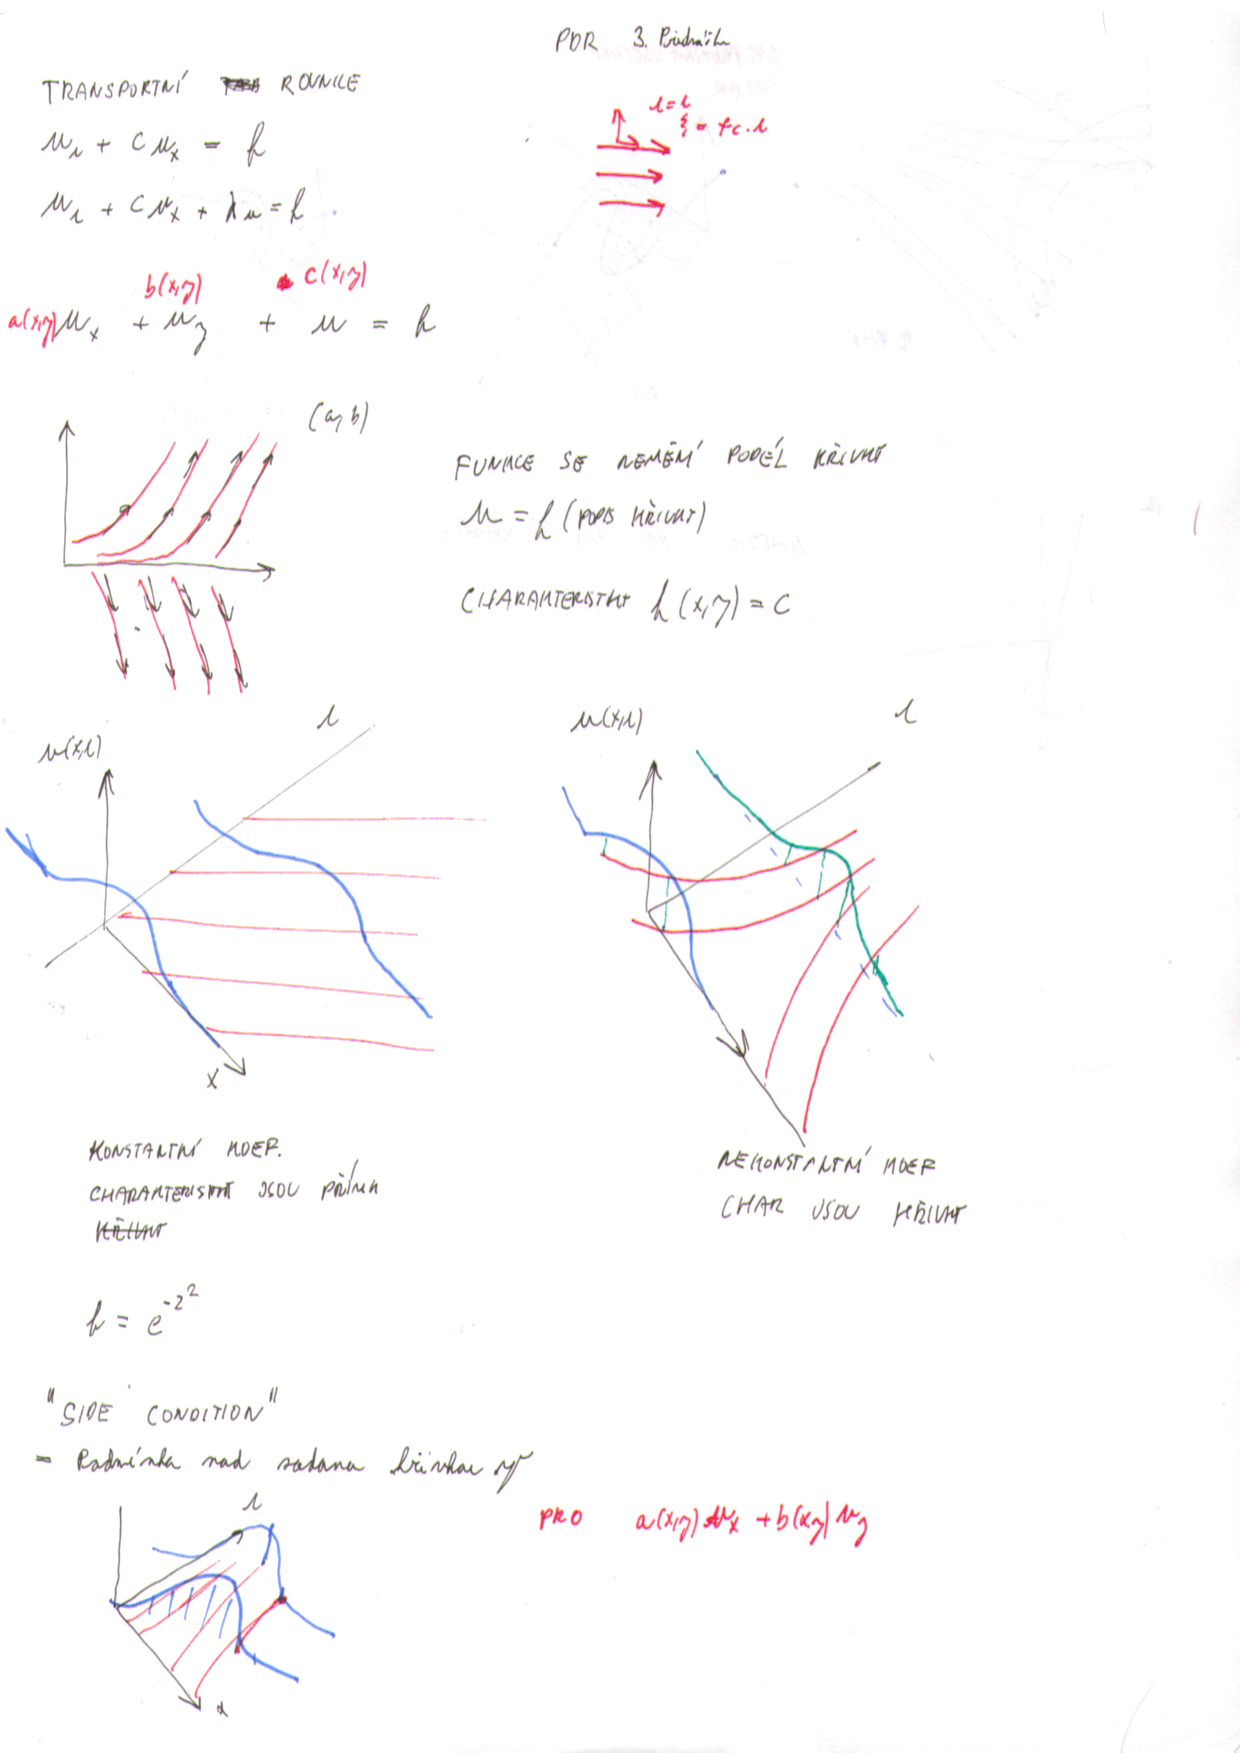 PDR 3. Přednáška
TRANSPORTNÍ ROVNICE
t = t
ξ = x - c·t
u_t + c u_x = f
u_t + c u_x + λu = f
b(x,y) c(x,y)
a(x,y) u_x + u_y + u = f
(a, b)
FUNKCE SE NEMĚNÍ PODÉL KŘIVKY
u = f (POPIS KŘIVKY)
CHARAKTERISTIKY h(x,y) = c
u(x,t) t
u(x,t) t
x
KONSTANTNÍ KOEF.
CHARAKTERISTIKY JSOU PŘÍMKY
KŘIVKY
NEKONSTANTNÍ KOEF
CHAR JSOU KŘIVKY
f = e^{-z^2}
"SIDE CONDITION"
= Podmínka nad zadanou křivkou γ
t
PRO a(x,y) u_x + b(x,y) u_y
x